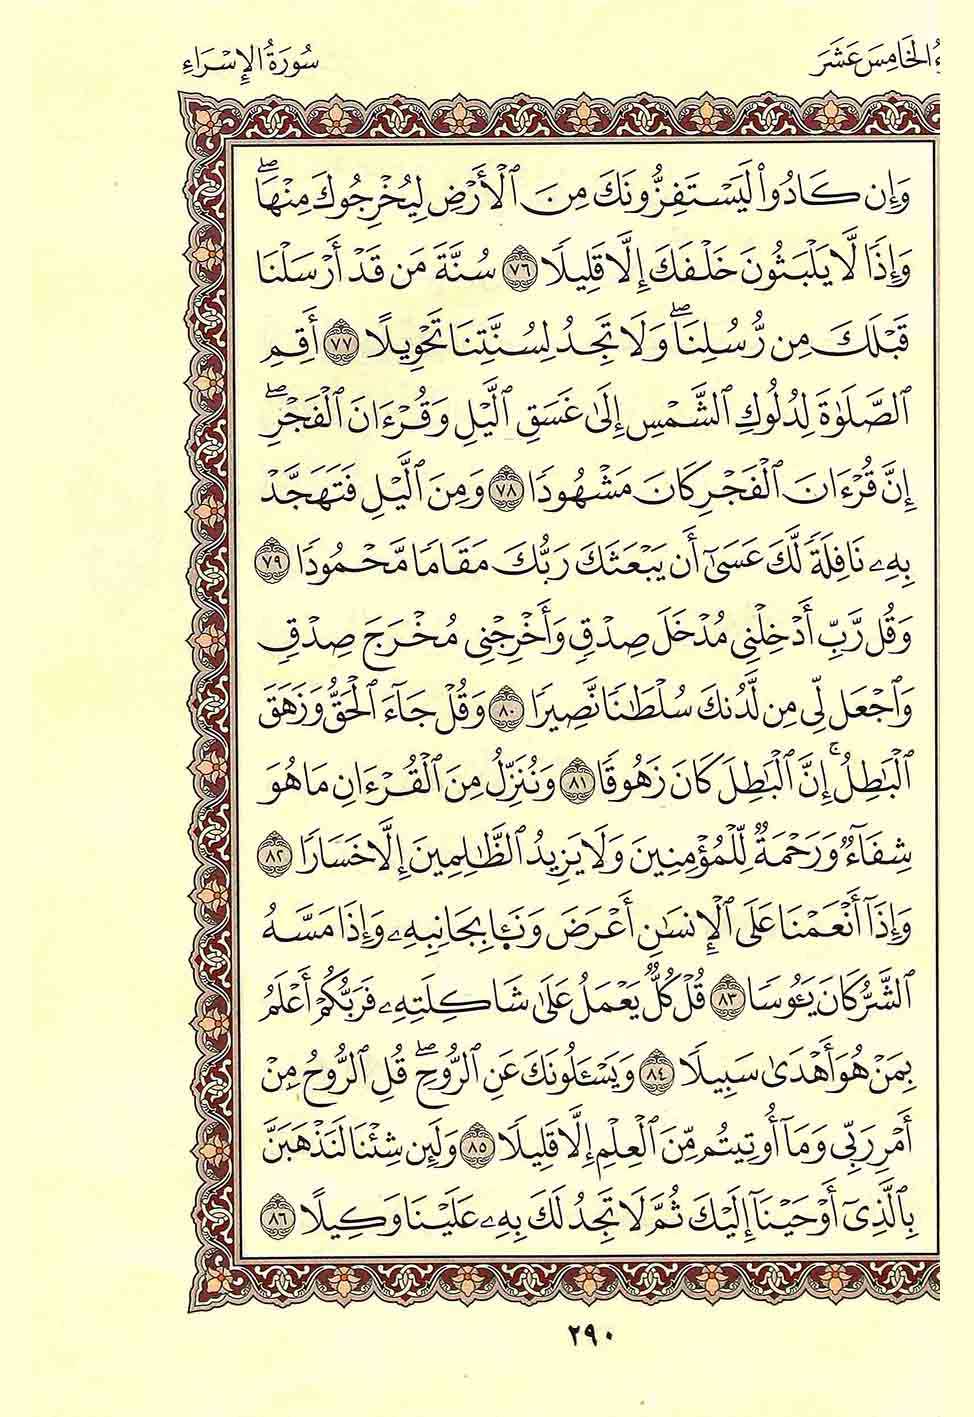 ءُ الخَامِسَ عَشَرَ سُورَةُ الإِسْرَاءِ
وَإِن كَادُوا۟ لَيَسْتَفِزُّونَكَ مِنَ ٱلْأَرْضِ لِيُخْرِجُوكَ مِنْهَا ۖ
وَإِذًا لَّا يَلْبَثُونَ خِلَٰفَكَ إِلَّا قَلِيلًا ٧٦ سُنَّةَ مَن قَدْ أَرْسَلْنَا
قَبْلَكَ مِن رُّسُلِنَا ۖ وَلَا تَجِدُ لِسُنَّتِنَا تَحْوِيلًا ٧٧ أَقِمِ
ٱلصَّلَوٰةَ لِدُلُوكِ ٱلشَّمْسِ إِلَىٰ غَسَقِ ٱلَّيْلِ وَقُرْءَانَ ٱلْفَجْرِ ۖ
إِنَّ قُرْءَانَ ٱلْفَجْرِ كَانَ مَشْهُودًا ٧٨ وَمِنَ ٱلَّيْلِ فَتَهَجَّدْ
بِهِۦ نَافِلَةً لَّكَ عَسَىٰٓ أَن يَبْعَثَكَ رَبُّكَ مَقَامًا مَّحْمُودًا ٧٩
وَقُل رَّبِّ أَدْخِلْنِى مُدْخَلَ صِدْقٍ وَأَخْرِجْنِى مُخْرَجَ صِدْقٍ
وَٱجْعَل لِّى مِن لَّدُنكَ سُلْطَٰنًا نَّصِيرًا ٨٠ وَقُلْ جَآءَ ٱلْحَقُّ وَزَهَقَ
ٱلْبَٰطِلُ ۚ إِنَّ ٱلْبَٰطِلَ كَانَ زَهُوقًا ٨١ وَنُنَزِّلُ مِنَ ٱلْقُرْءَانِ مَا هُوَ
شِفَآءٌ وَرَحْمَةٌ لِّلْمُؤْمِنِينَ وَلَا يَزِيدُ ٱلظَّٰلِمِينَ إِلَّا خَسَارًا ٨٢
وَإِذَآ أَنْعَمْنَا عَلَى ٱلْإِنسَٰنِ أَعْرَضَ وَنَـَٔا بِجَانِبِهِۦ وَإِذَا مَسَّهُ
ٱلشَّرُّ كَانَ يَـُٔوسًا ٨٣ قُلْ كُلٌّ يَعْمَلُ عَلَىٰ شَاكِلَتِهِۦ فَرَبُّكُمْ أَعْلَمُ
بِمَنْ هُوَ أَهْدَىٰ سَبِيلًا ٨٤ وَيَسْـَٔلُونَكَ عَنِ ٱلرُّوحِ ۖ قُلِ ٱلرُّوحُ مِنْ
أَمْرِ رَبِّى وَمَآ أُوتِيتُم مِّنَ ٱلْعِلْمِ إِلَّا قَلِيلًا ٨٥ وَلَئِن شِئْنَا لَنَذْهَبَنَّ
بِٱلَّذِىٓ أَوْحَيْنَآ إِلَيْكَ ثُمَّ لَا تَجِدُ لَكَ بِهِۦ عَلَيْنَا وَكِيلًا ٨٦
٢٩٠